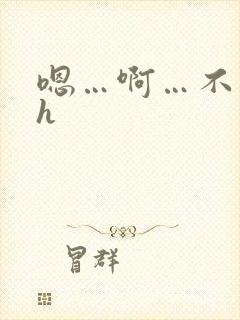 嗯…啊…不
h
冒群